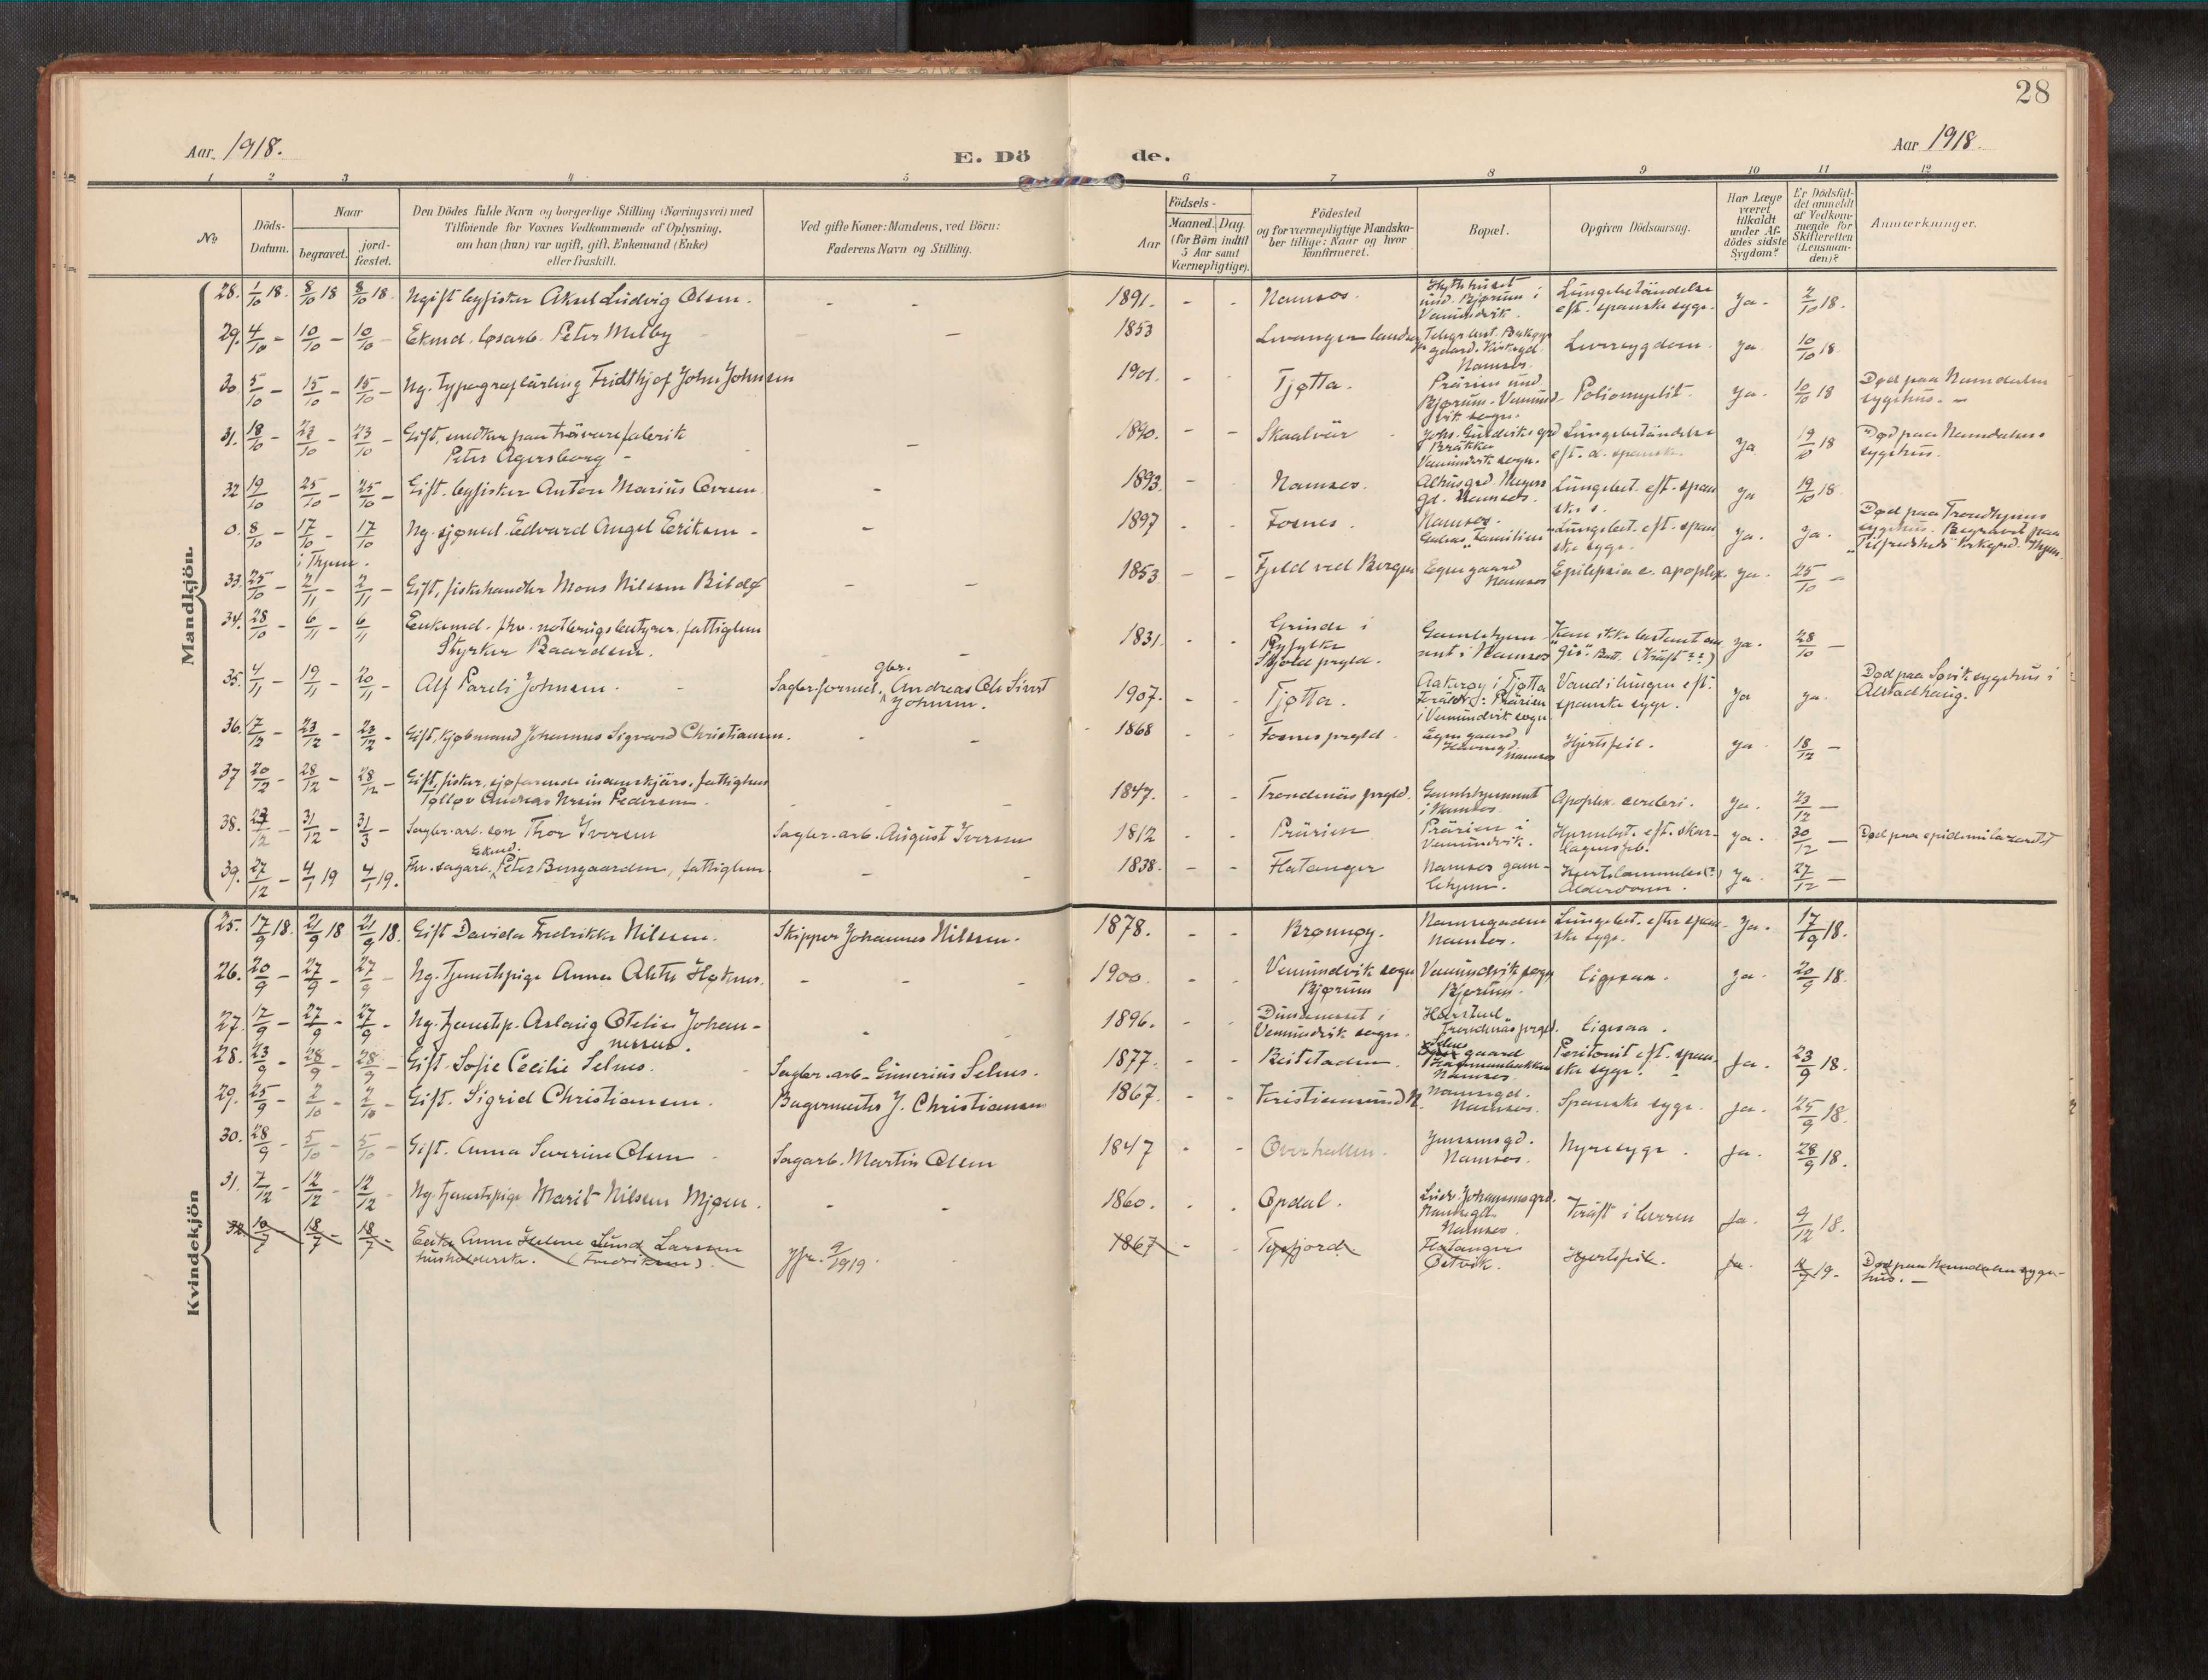 28
Aar 1918.
E. Dö
de.
Aar 1918.
1 2 3 4 5 6 7 8 9 10 11 12
No.
Döds-Datum.
Naar
begravet.
jordfæstet.
Den Dödes fulde Navn og borgerlige Stilling (Næringsvei) med
Tilföiende for Voxnes Vedkommende af Oplysning,
om han (hun) var ugift, gift, Enkemand (Enke)
eller fraskilt.
Ved gifte Koner: Mandens, ved Börn:
Faderens Navn og Stilling.
Födsels-
Aar
Maaned. Dag.
(for Börn indtil
5 Aar samt
Værnepligtige).
Födested
og for værnepligtige Mandska-
ber tillige: Naar og hvor
konfirmeret.
Bopæl.
Opgiven Dödsaarsag.
Har Læge
været
tilkaldt
under Af-
dödes sidste
Sygdom?
Er Dödsfal-
det anmeldt
af Vedkom-
mende for
Skifteretten
(Lensman-
den)?
Anmærkninger.
Mandkjön.
28. 1/10 18. 8/10 18 8/10 18. Ugift byfisker Aksel Ludvig Olsen. - - 1891. - - Namsos. und. Bjørum i Vemundvik. Lungebetændelse eft. spanske syge. Ja. 2/10 18.
29. 4/10 - 10/10 - 10/10 - Ekmd. løsarb. Peter Melby - 1853 Levanger landsogn Namsos. Leversygdom. Ja 10/10 18.
30. 5/10 - 15/10 - 15/10 - Ug. typograflärling Fridthjof John Johnsen 1901. - Tjøtta. Prärien und. Bjørum. Vemundvik sogn. Poliomyelit. Ja. 10/10 18 Død paa Namdalens sygehus. -
31. 18/10 - 23/10 - 23/10 - Gift, snedker paa trävarefabrik
Peter Agersborg - - 1890. - - Skaalvär Vemundvik sogn. Lungebetändelse eft. d. spanske. Ja 19/10 18 Død paa Namdalens sygehus.
32 19/10 25/10 - 25/10 - Gift. byfisker Anton Marius - 1893. - Namsos. Namsos. Lungebet. eft. spanske s. Ja 19/10 18.
0. 8/10 - 17/10 - 17/10 Ug. sjømd. Edvard Angel Eriksen - - 1897 - - Fosnes. Namsos. Lungebet. eft. spanske syge. Ja. Ja. Død paa Trondhjems sygehus. Begravet paa "Tilfredshed" kirkegrd. Thjem.
i Thjem.
33. 25/10 - 2/11 - 2/11 - Gift, fiskehandler Mons Nilsen Bildø - - 1853 - - Fjeld ved Bergen Egen gaard Namsos Epilepsia e. apoplex. Ja. 25/10 -
34. 28/10 - 6/11 - 6/11 Enkemd. fhv. notbrugsbestyrer. fattiglem
Styrker Baardsen. - - 1831. - - Grinde i Ryfylke Skjold prgld. Gamlehjemmet i Namsos Kan ikke bestemt angis. (Kräft??) Ja. 28/10 -
35. 4/11 - 19/11 - 20/11 - Alf Pareli Johnsen. - Sagbr.formd. gbr. Andreas Ole Sivert Johnsen. 1907. - - Tjøtta. i Tjøtta Prärien i Vemundvik sogn Vand i lungen eft. spanske syge. Ja Ja. Død paa Søvik sygehus i Alstadhaug.
36. 17/12 - 23/12 - 23/12 - Gift, kjøbmand Johannes Sigvard Christiansen. - - 1868 - - Fosnes prgld. Egen gaard Havnegd. Namsos Hjertefeil. Ja 18/12 -
37 20/12 - 28/12 - 28/12 - Gift, fisker, sjøfarende indenskjärs. fattiglem
Tollev Andreas Ursin Pedersen. - - 1847. - - Trondenäs prgld. Gamlehjemmet i Namsos. Apoplex. cerebri. Ja. 23/12 -
38. 23/12 - 31/12 - 31/3 - Sagbr.-arb. søn Thor Iversen Sagbr.-arb. August Iversen 1812 - - Prärien Prärien i Vemundvik. Ja. 30/12 - Død paa epidemilazarett
39. 27/12 - 4/1 19 4/1 19. Fhv. sagarb. Ekmd. Peter Bersgaarden, fattiglem. - - 1838. - - Flatanger Namsos gamlehjem. Hjertelammelse(?) Alderdom. Ja. 27/12 -
Kvindekjön.
25. 17/9 18. 21/9 18 21/9 18. Gift Davida Fredrikke Nilssen. Skipper Johannes Nilssen. 1878. - - Brønnøy. Namsos. Lungebet. efter spanske syge. Ja. 17/9 18.
26. 20/9 - 27/9 - 27/9 - Ug. tjenestepige Anna Høknes. - - 1900. - - Vemundvik sogn Bjørum Vemundvik sogn Bjørum. Ligesaa. Ja. 20/9 18.
27. 17/9 - 27/9 - 27/9 - Ug. tjenestep. Aslaug Otelie Johan-
nessen. - 1896. - - Vemundvik sogn. Harstad. Trondenäs prgld. Ligesaa.
28. 23/9 - 28/9 - 28/9 - Gift. Sofie Cecilie Selnes. - Sagbr.-arb. Gunerius Selnes. 1877. - - Beitstaden gaard Namsos. Peritonit eft. spanske syge. Ja. 23/9 18.
29. 25/9 - 2/10 - 2/10 - Gift. Sigrid Christiansen. Bagermester J. Christiansen 1867. - - Kristiansund N. Namsos. Spanske syge. Ja. 25/9 18.
30. 28/9 - 5/10 - 5/10 - Gift. Anna Severine Olsen Sagarb. Martin Olsen 1847 - - Overhallen. Namsos. Nyresyge. Ja. 28/9 18.
31. 7/12 - 12/12 - 12/12 Ug. tjenestepige Marit Nilsen Mjøen. - - 1860. - - Opdal. Ludv. Johansensgrd. Namsos. Kräft i leveren Ja. 9/12 18.
32 10/7 18/7 - 18/7 - Enke Anna Helene Lund Larssen
husholderske. (Fredriksen). Jfr. 9/1919. 1867 - - Tysfjord. Flatanger Østvik. Hjertefeil. Ja. 11/7 19. Død paa Namdalen sygehus. -